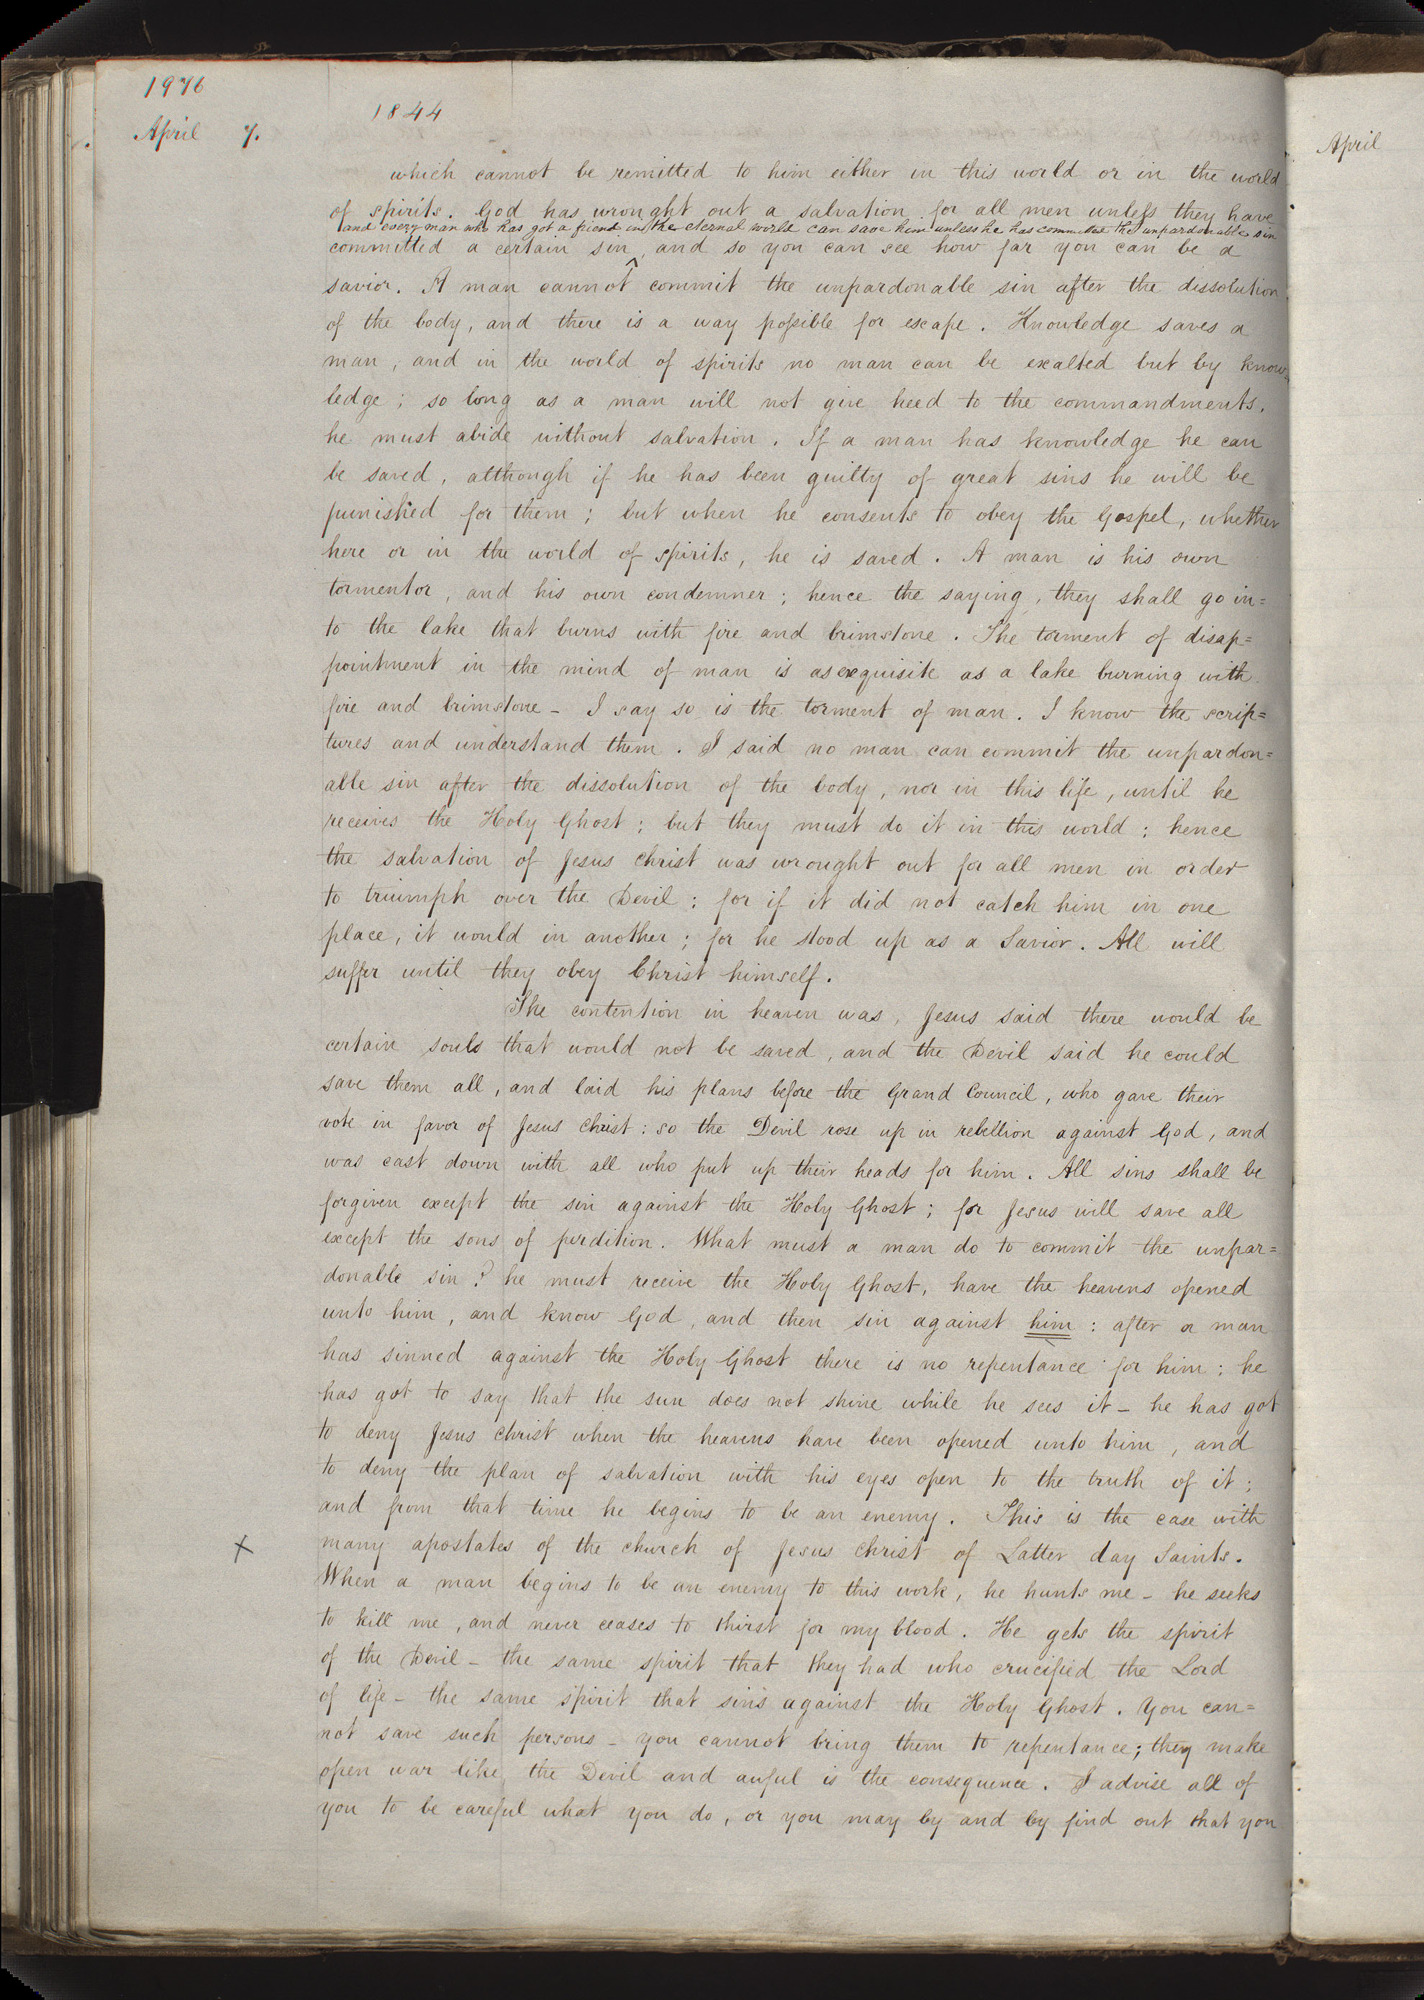 1976
1844
April 7.
April
which cannot be remitted to him either in this world or in the world
of spirits. God has wrought out a salvation for all men unless they have
and every man who has got a friend in the eternal world can save him unless he has committed the unpardonable sin
committed a certain sin, and so you can see how far you can be a
^
savior. A man cannot commit the unpardonable sin after the dissolution
of the body, and there is a way possible for escape. Knowledge saves a
man, and in the world of spirits no man can be exalted but by know-
ledge; so long as a man will not give heed to the commandments,
he must abide without salvation. If a man has knowledge he can
be saved, although if he has been guilty of great sins he will be
punished for them; but when he consents to obey the Gospel, whether
here or in the world of spirits, he is saved. A man is his own
tormentor, and his own condemner; hence the saying, they shall go in=
to the lake that burns with fire and brimstone. The torment of disap=
pointment in the mind of man is as exquisite as a lake burning with
fire and brimstone — I say so is the torment of man. I know the scrip=
tures and understand them. I said no man can commit the unpardon=
able sin after the dissolution of the body, nor in this life, until he
receives the Holy Ghost; but they must do it in this world; hence
the salvation of Jesus Christ was wrought out for all men in order
to triumph over the Devil; for if it did not catch him in one
place, it would in another; for he stood up as a Savior. All will
suffer until they obey Christ himself.
The contention in heaven was, Jesus said there would be
certain souls that would not be saved, and the Devil said he could
save them all, and laid his plans before the Grand Council, who gave their
vote in favor of Jesus Christ: so the Devil rose up in rebellion against God, and
was cast down with all who put up their heads for him. All sins shall be
forgiven except the sin against the Holy Ghost; for Jesus will save all
except the sons of perdition. What must a man do to commit the unpar=
donable sin? he must receive the Holy Ghost, have the heavens opened
unto him, and know God, and then sin against him: after a man
has sinned against the Holy Ghost there is no repentance for him; he
has got to say that the sun does not shine while he sees it — he has got
to deny Jesus Christ when the heavens have been opened unto him, and
to deny the plan of salvation with his eyes open to the truth of it;
and from that time he begins to be an enemy. This is the case with
X many apostates of the church of Jesus Christ of Latter day Saints.
When a man begins to be an enemy to this work, he hunts me — he seeks
to kill me, and never ceases to thirst for my blood. He gets the spirit
of the Devil — the same spirit that they had who crucified the Lord
of life — the same spirit that sins against the Holy Ghost. You can=
not save such persons — you cannot bring them to repentance; they make
open war like the Devil and awful is the consequence. I advise all of
you to be careful what you do, or you may by and by find out that you